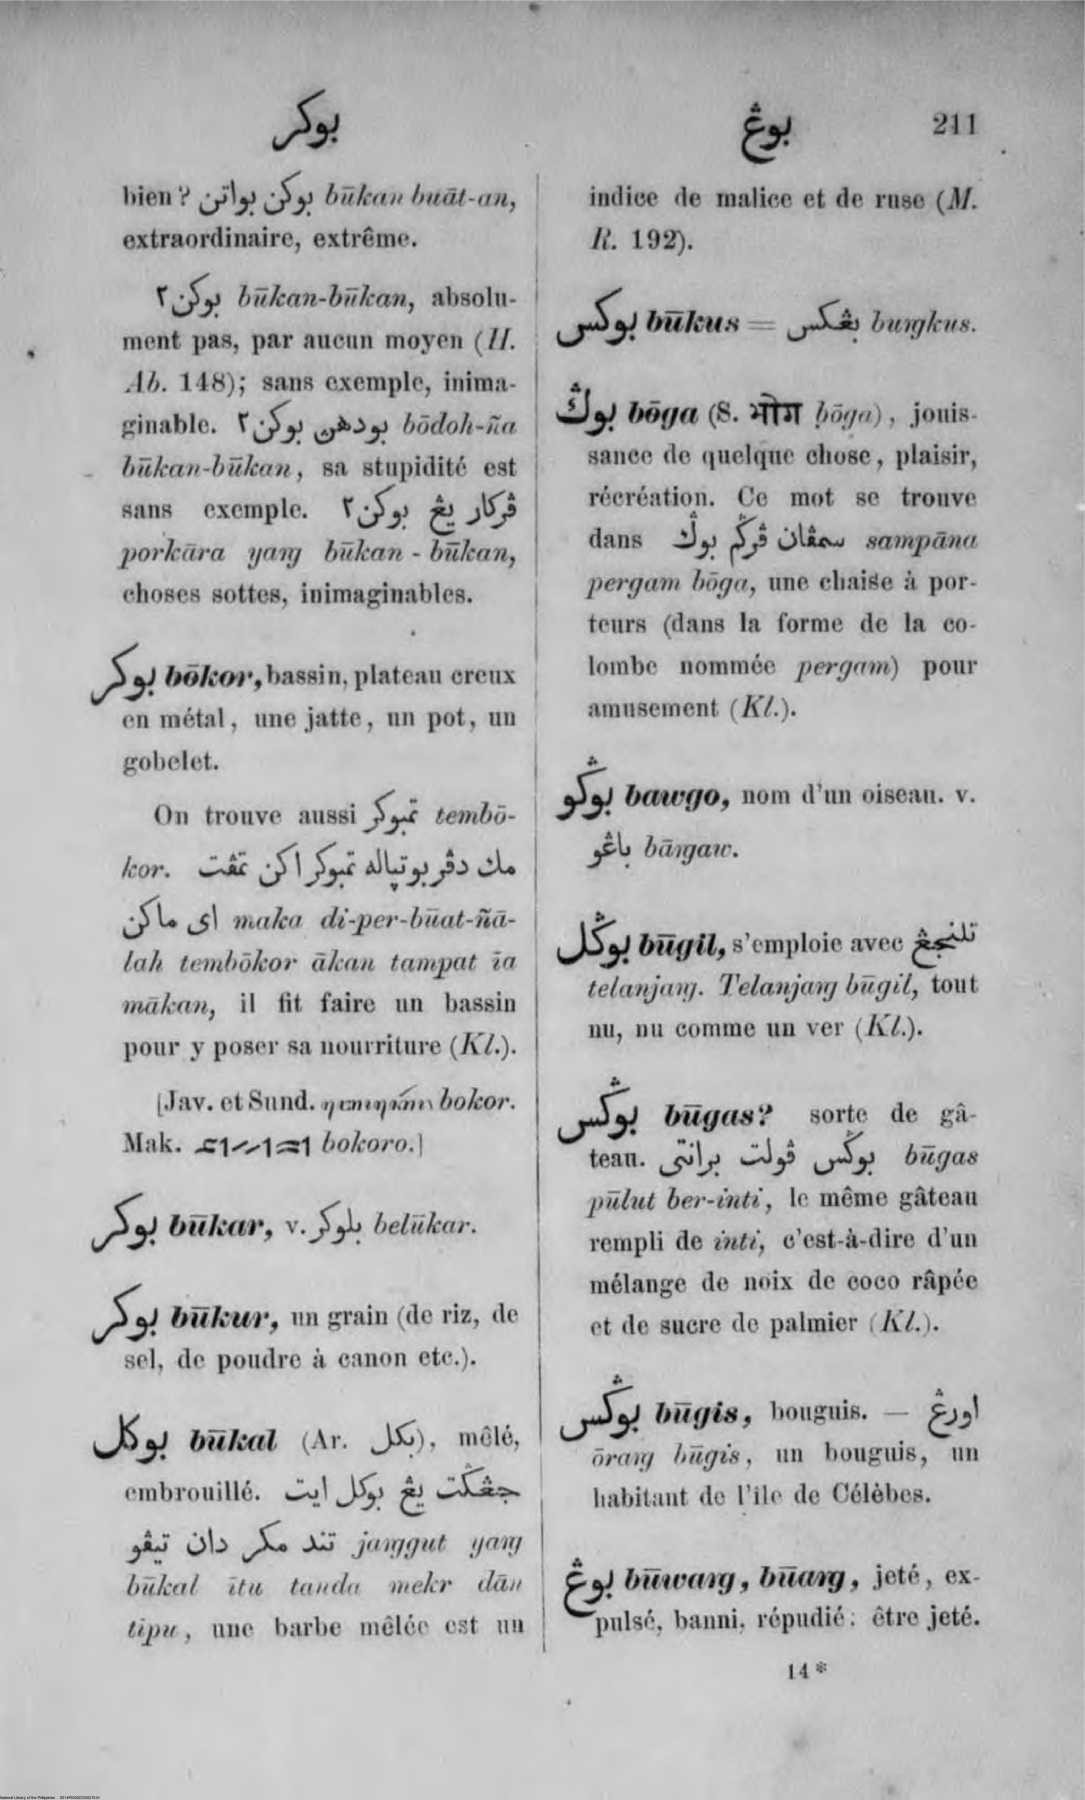 بوكر
بوڠ 211
bien? بوكن بواتن būkan buāt-an,
extraordinaire, extrême.
بوكن٢ būkan-būkan, absolu-
ment pas, par aucun moyen (H.
Ab. 148); sans exemple, inima-
ginable. بودهن بوكن٢ bōdoh-ña
būkan-būkan, sa stupidité est
sans exemple. ڤركار يڠ بوكن٢
porkāra yaŋ būkan-būkan,
choses sottes, inimaginables.
بوكر bōkor, bassin, plateau creux
en métal, une jatte, un pot, un
gobelet.
On trouve aussi تمبوكر tembō-
kor. مك دڤربوتڽاله تمبوكر اكن تمڤت
اى ماكن maka di-per-būat-ñā-
lah tembōkor ākan tampat īa
mākan, il fit faire un bassin
pour y poser sa nourriture (Kl.).
[Jav. et Sund. bokor.
Mak. bokoro.]
بوكر būkar, v. بلوكر belūkar.
بوكر būkur, un grain (de riz, de
sel, de poudre à canon etc.).
بوكل būkal (Ar. بكل), mêlé,
embrouillé. جڠݢت يڠ بوكل ايت
تند مكر دان تيڤو jaŋggut yaŋ
būkal ītu tanda mekr dān
tīpu, une barbe mêlée est un
indice de malice et de ruse (M.
R. 192).
بوكس būkus = بڠكس buŋkus.
بوݢ bōga (S. भोग bōga), jouis-
sance de quelque chose, plaisir,
récréation. Ce mot se trouve
dans سمڤان ڤرݢم بوݢ sampāna
pergam bōga, une chaise à por-
teurs (dans la forme de la co-
lombe nommée pergam) pour
amusement (Kl.).
بوݢو bawgo, nom d'un oiseau. v.
باڠو bāŋaw.
بوݢل būgil, s'emploie avec تلنجڠ
telanjaŋ. Telanjaŋ būgil, tout
nu, nu comme un ver (Kl.).
بوݢس būgas? sorte de gâ-
teau. بوݢس ڤولت برانتى būgas
pūlut ber-inti, le même gâteau
rempli de inti, c'est-à-dire d'un
mélange de noix de coco râpée
et de sucre de palmier (Kl.).
بوݢس būgis, bouguis. — اورڠ
ōraŋ būgis, un bouguis, un
habitant de l'île de Célèbes.
بوڠ būwaŋ, būaŋ, jeté, ex-
pulsé, banni, répudié; être jeté.
14*